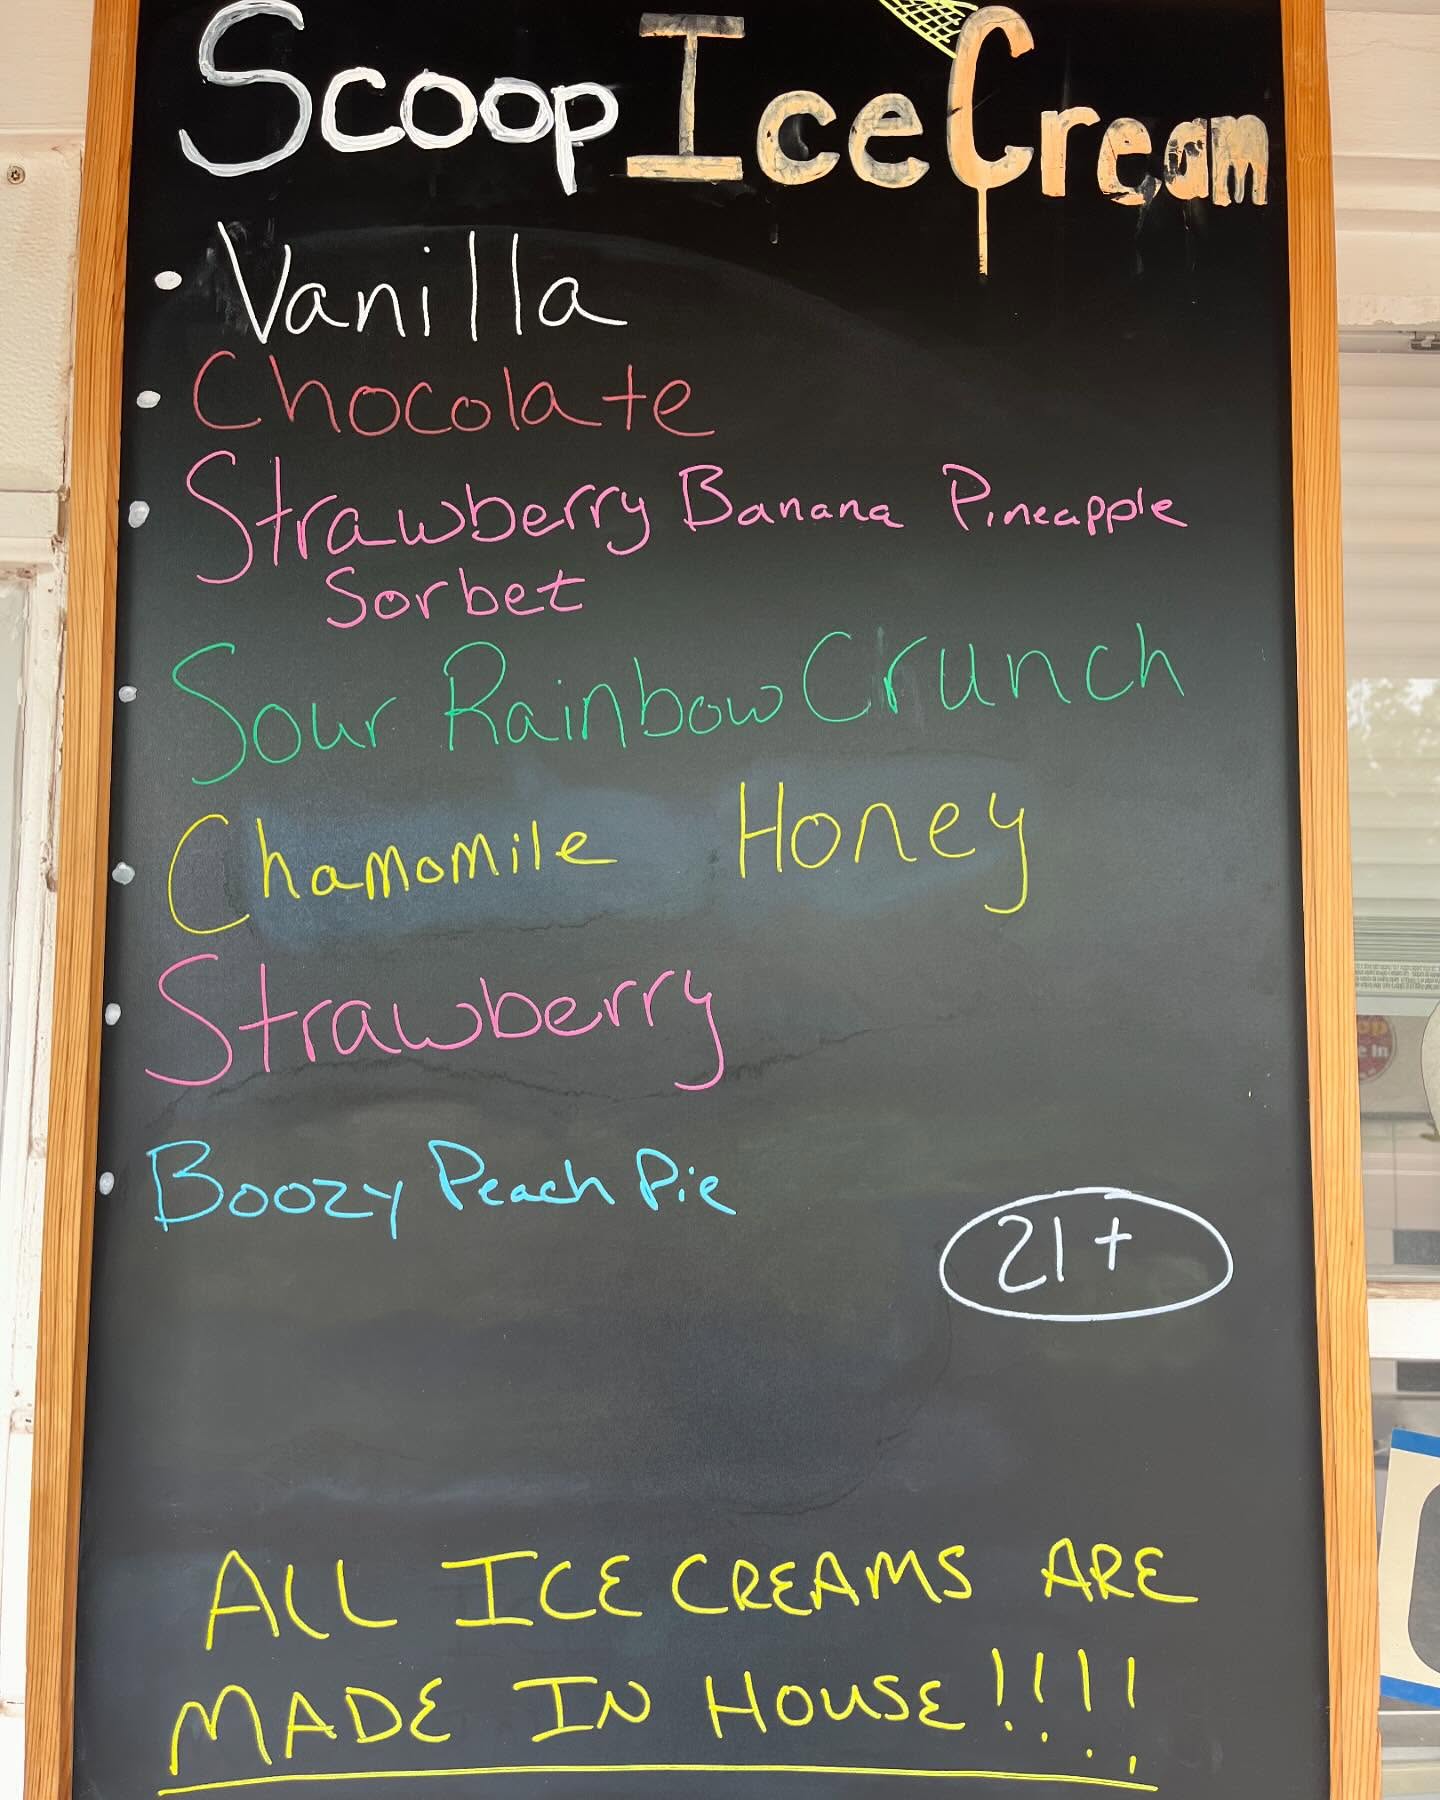 Scoop Ice Cream
• Vanilla
• Chocolate
• Strawberry Banana Pineapple
Sorbet
• Sour Rainbow Crunch
• Chamomile Honey
• Strawberry
• Boozy Peach Pie
21+
ALL ICE CREAMS ARE
MADE IN HOUSE!!!!